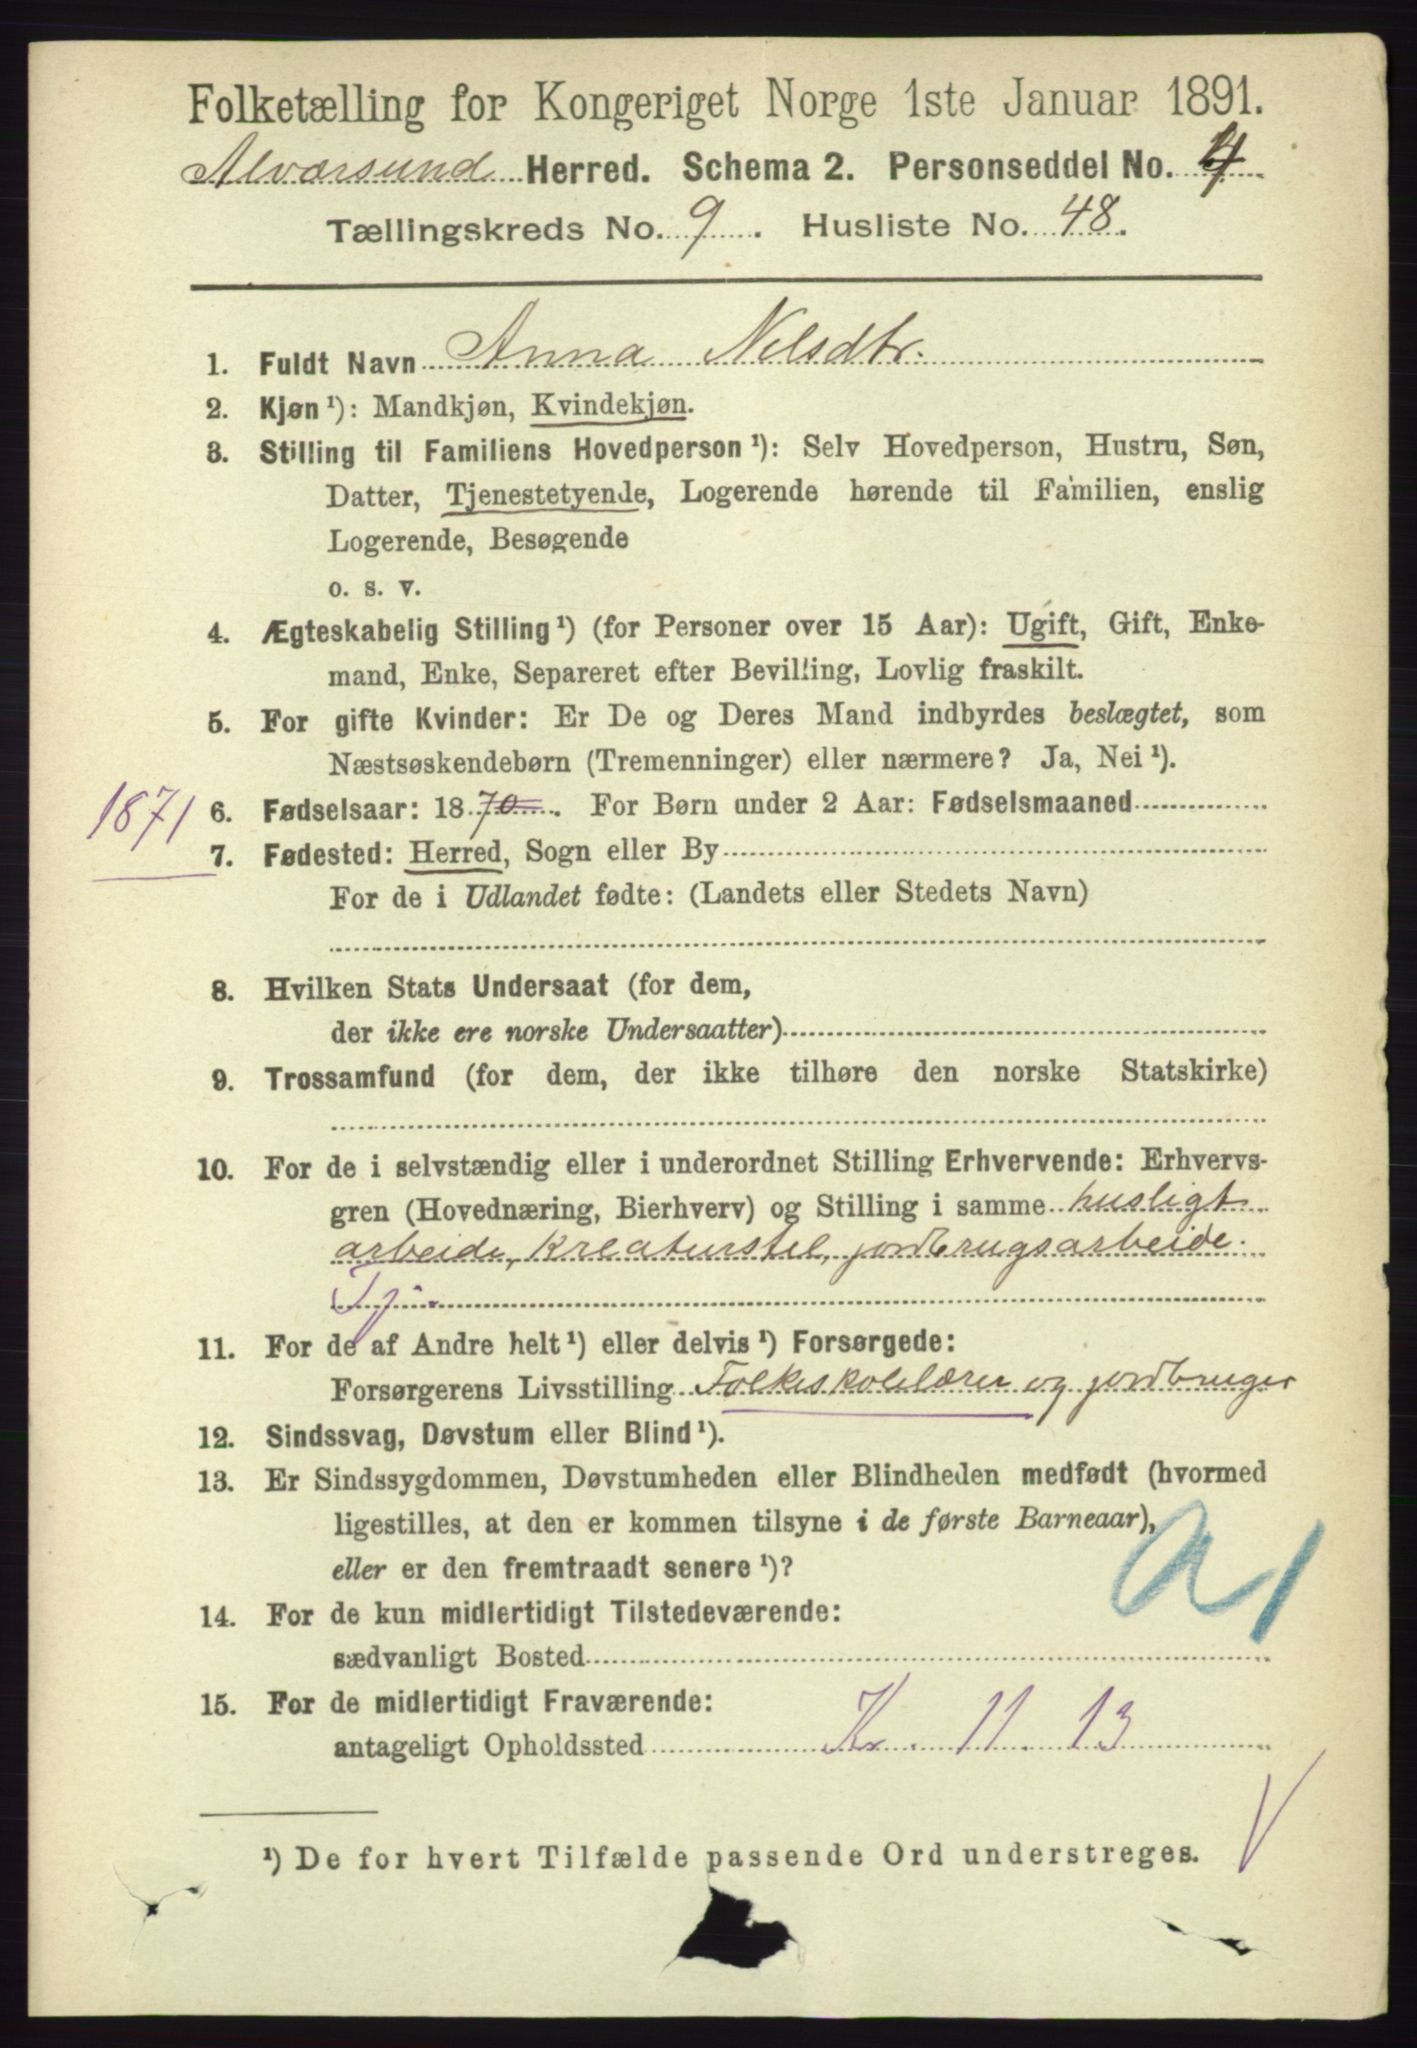 Folketælling for Kongeriget Norge 1ste Januar 1891.
Alværsund Herred. Schema 2. Personseddel No. 4
Tællingskreds No. 9. Husliste No. 48.
1. Fuldt Navn Anna Nilsdtr.
2. Kjøn ¹): Mandkjøn, Kvindekjøn.
3. Stilling til Familiens Hovedperson ¹): Selv Hovedperson, Hustru, Søn,
Datter, Tjenestetyende, Logerende hørende til Familien, enslig
Logerende, Besøgende
o. s. v.
4. Ægteskabelig Stilling ¹) (for Personer over 15 Aar): Ugift, Gift, Enke-
mand, Enke, Separeret efter Bevilling, Lovlig fraskilt.
5. For gifte Kvinder: Er De og Deres Mand indbyrdes beslægtet, som
Næstsøskendebørn (Tremenninger) eller nærmere? Ja, Nei ¹).
1871 6. Fødselsaar: 1870. For Børn under 2 Aar: Fødselsmaaned
7. Fødested: Herred, Sogn eller By
For de i Udlandet fødte: (Landets eller Stedets Navn)
8. Hvilken Stats Undersaat (for dem,
der ikke ere norske Undersaatter)
9. Trossamfund (for dem, der ikke tilhøre den norske Statskirke)
10. For de i selvstændig eller i underordnet Stilling Erhvervende: Erhvervs-
gren (Hovednæring, Bierhverv) og Stilling i samme husligt
arbeide, kreaturstel, jordbrugsarbeide.
Tj.
11. For de af Andre helt ¹) eller delvis ¹) Forsørgede:
Forsørgerens Livsstilling Folkeskolelærer og jordbruger
12. Sindssvag, Døvstum eller Blind ¹).
13. Er Sindssygdommen, Døvstumheden eller Blindheden medfødt (hvormed
ligestilles, at den er kommen tilsyne i de første Barneaar),
eller er den fremtraadt senere ¹)?
14. For de kun midlertidigt Tilstedeværende:
sædvanligt Bosted
15. For de midlertidigt Fraværende:
antageligt Opholdssted Kr. 11. 13
¹) De for hvert Tilfælde passende Ord understreges.